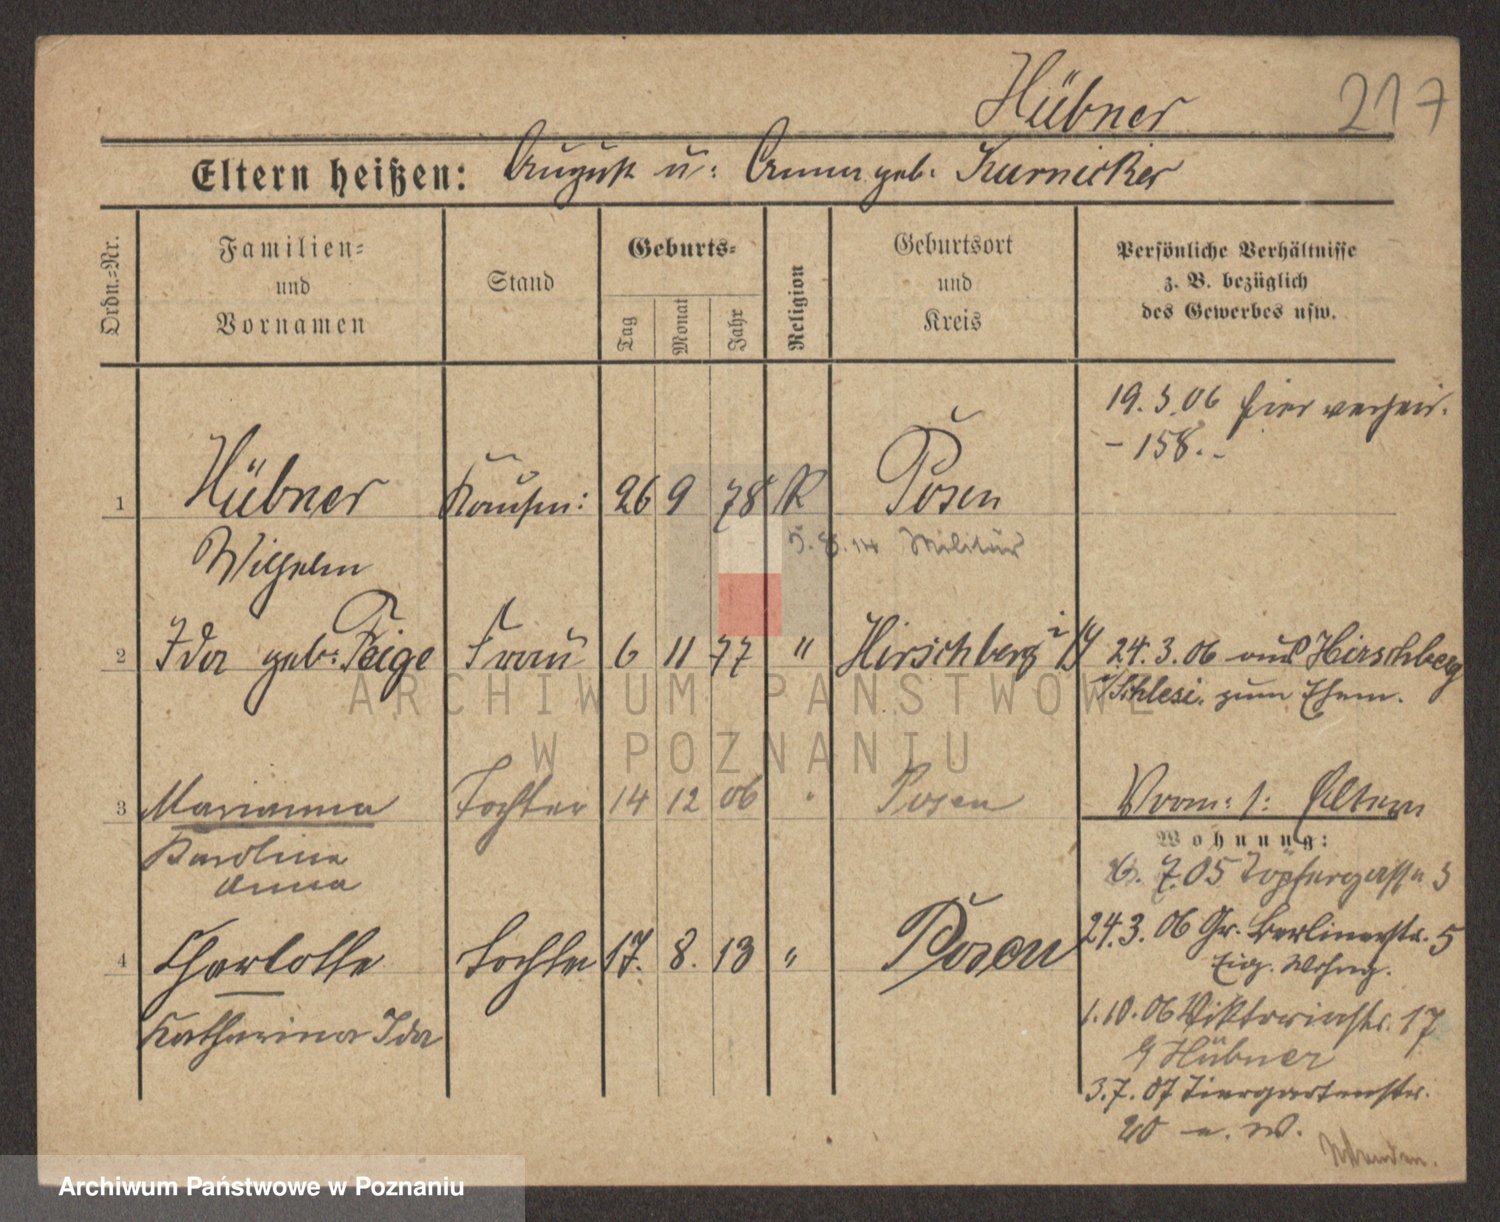 Hübner 217
Eltern heißen: August u: Anna geb. Kurnicker
Ordn.=Nr.
Familien=
und
Vornamen
Stand
Geburts=
Tag
Monat
Jahr
Religion
Geburtsort
und
Kreis
Persönliche Verhältnisse
z. B. bezüglich
des Gewerbes usw.
19.3.06 hier verheir.
- 158. -
1 Hübner Kaufm: 26 9 78 K Posen
Wilhelm
5.8.14 Militär
2 Ida geb: Feige Frau 6 11 77 " Hirschberg 24.3.06 aus Hirschberg
i/Schlesi. zum Ehem.
3 Marianna Tochter 14 12 06 " Posen Vorm: f: Eltern
Karolina
Anna
Wohnung:
6. 7.05 Töpfergasse 3
4 Charlotte Tochter 17. 8. 13 " Posen
Katharina Ida
24.3.06 Gr. Berlinerstr. 5
Eig. Wohng.
1.10.06 Viktoriastr. 17
Hübner
3.7.07 Tiergartenstr.
20 e. W.
ARCHIWUM PAŃSTWOWE
W POZNANIU
Archiwum Państwowe w Poznaniu